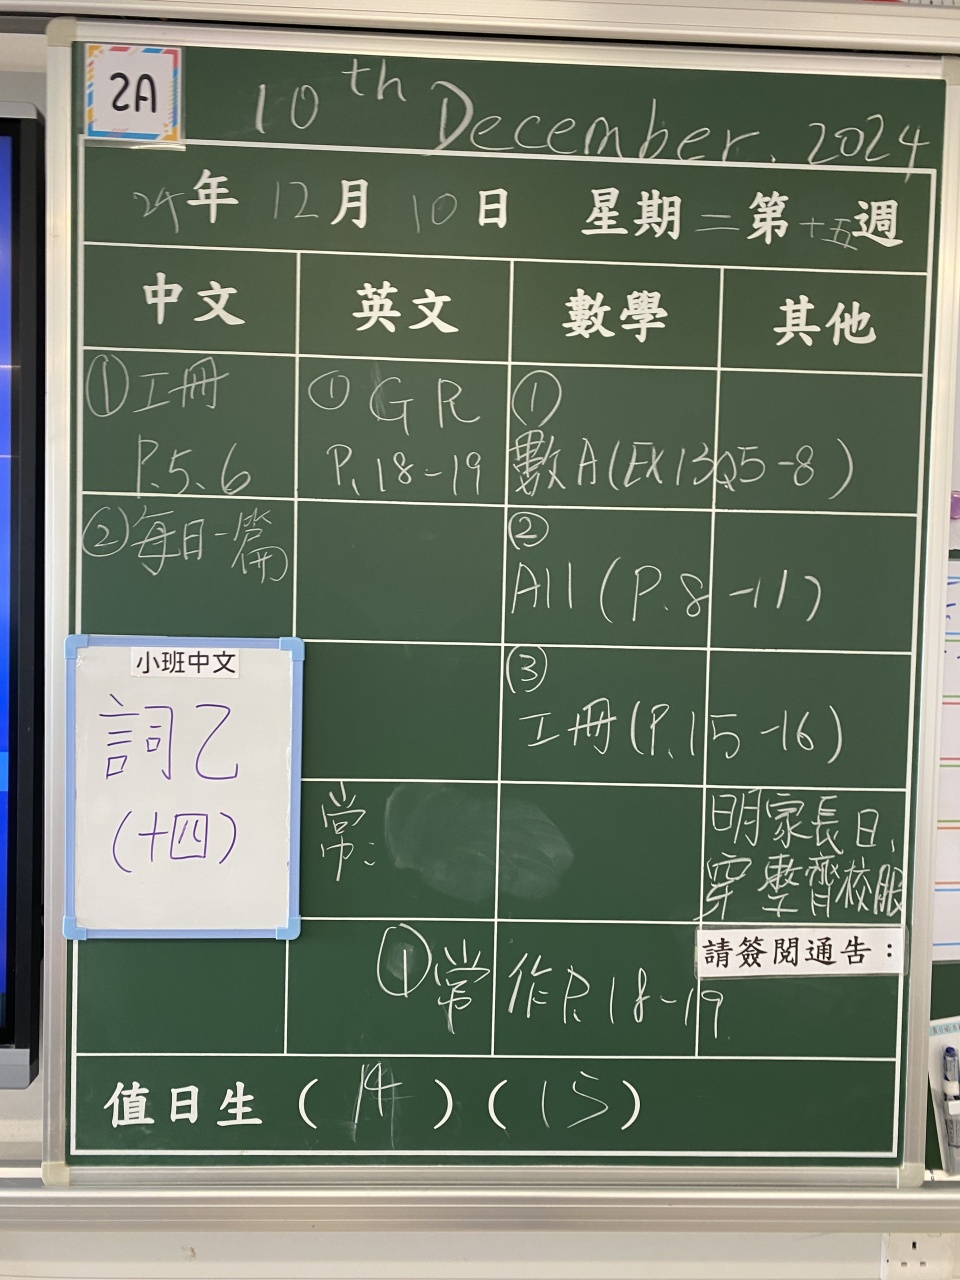 2A
10th December. 2024
24年 12月 10日 星期二 第十五週
中文 英文 數學 其他
①工冊
P.5、6
②每日一篇
小班中文
詞乙
(十四)
①GR
P.18-19
①
數A(EX13Q5-8)
②
All (P.8-11)
③
工冊(P.15-16)
常:
明家長日,
穿整齊校服
請簽閱通告:
①常作P.18-19
值日生 (14) (15)